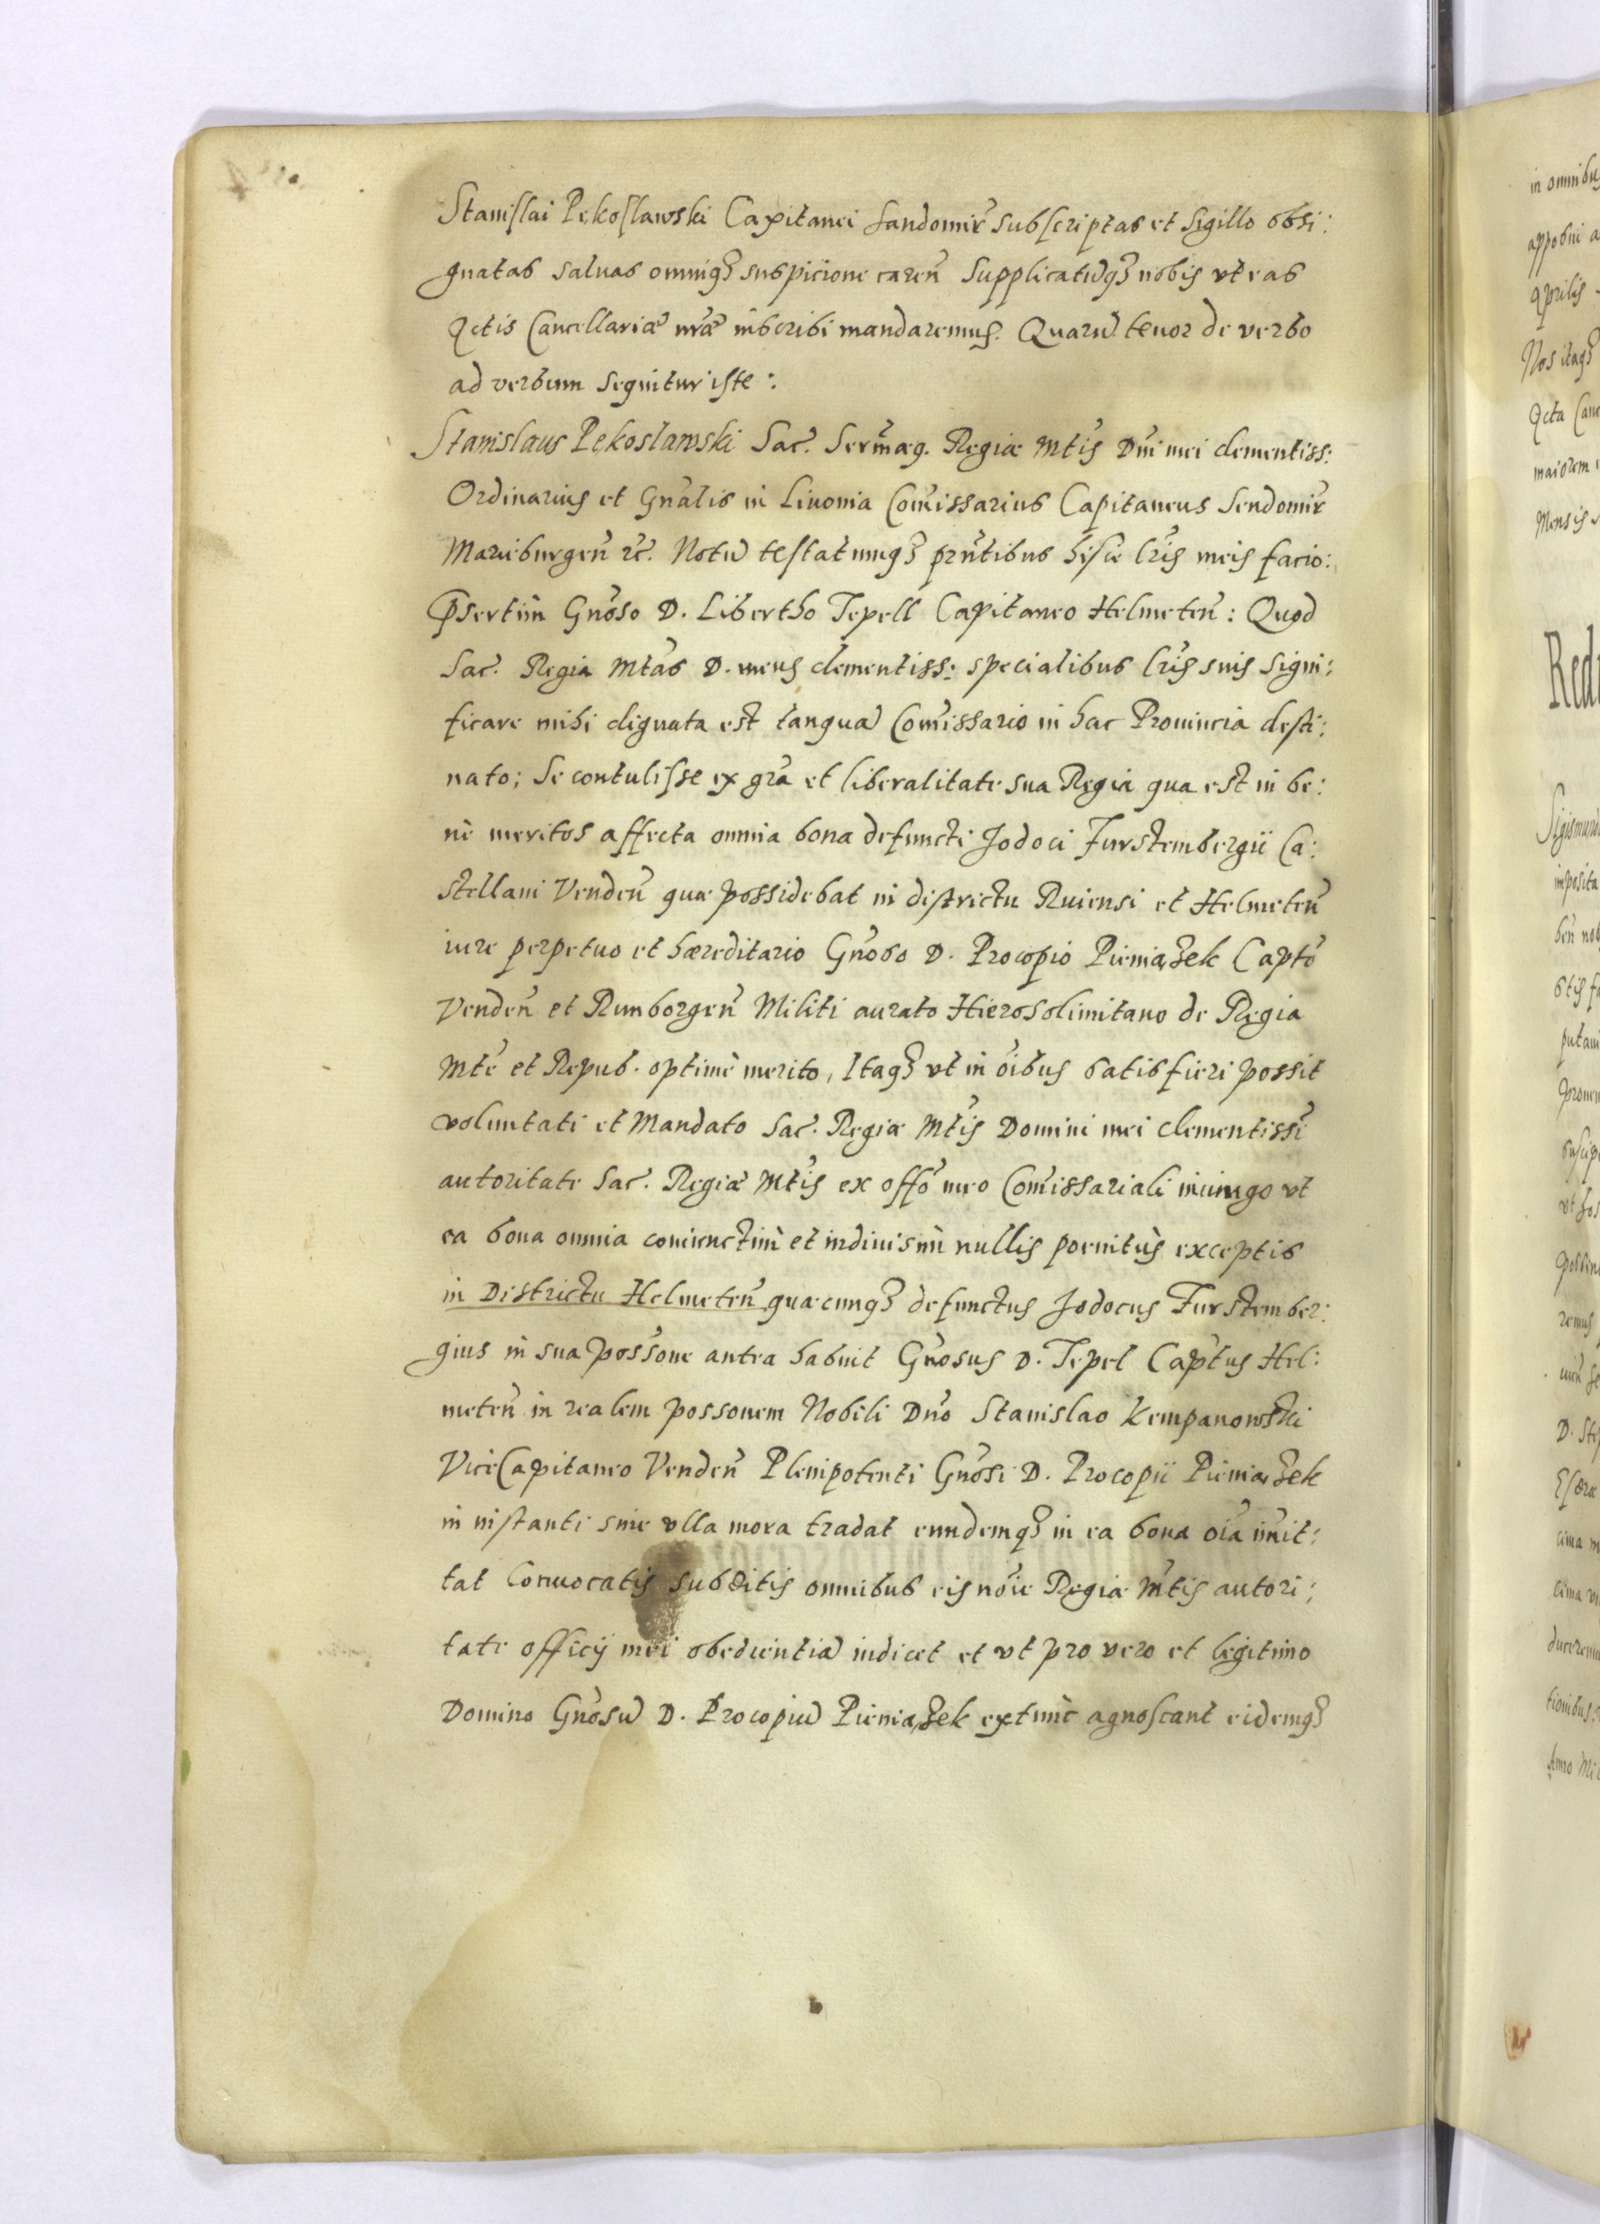 Stanislai Pękoslawski Capitanei Sandomir̃ subscriptas et Sigillo obsi:
gnatas saluas omniq3 suspicione careñ Supplicatũq3 nobis vt eas
Actis Cancellariæ nr̃æ inscribi mandaremus. Quarũ tenor de verbo
ad verbum sequitur iste:
Stanislaus Pękoslawski Sac. Serm̃æq. Regiæ Mtis Dñi mei clementiss:
Ordinarius et Gñalis in Liuonia Com̃issarius Capitaneus Sendomir̃
Marieburgeñ rc̃. Notũ testatumq3 prñtibus hisce lr̃is meis facio:
Pſertim Gñoso D. Libertho Tepell Capitaneo Helmeteñ: Quod
Sac. Regia Mtas D. meus clementiss: specialibus lr̃is suis signi:
ficare mihi dignata est tanquã Com̃issario in hac Prouincia desti:
nato; Se contulisse ex gr̃a et liberalitate sua Regia qua est in be:
nè meritos affecta omnia bona defuncti Jodoci Furstembergii Ca:
stellani Vendeñ quæ possidebat in districtu Ruiensi et Helmeteñ
iure perpetuo et hæreditario Gñoso D. Procopio Pieniążek Capto
Vendeñ et Runborgeñ Militi aurato Hierosolimitano de Regia
Mte et Repub. optimè merito, Itaq3 vt in oĩbus satisfieri possit
voluntati et Mandato Sac. Regiæ Mtis Domini mei clementissi
autoritate Sac. Regiæ Mtis ex offo meo Com̃issariali iniungo vt
ea bona omnia coniunctim et indiuisim nullis poenitùs exceptis
in Districtu Helmeteñ quæcunq3 defunctus Jodocus Furstember:
gius in sua possone antea habuit Gñosus D. Tepel Captus Hel:
meteñ in realem possonem Nobili Dño Stanislao Kempanowski
ViceCapitaneo Vendeñ Plenipotenti Gñosi D. Procopii Pieniążek
in instanti sine vlla mora tradat eundemq3 in ea bona oĩa im̃it:
tat Conuocatis subditis omnibus eis noĩe Regiæ Mtis autori:
tate officij mei obedientiã indicet et vt pro vero et legitimo
Domino Gñosũ D. Procopiũ Pieniążek extunc agnoscant eidemq3